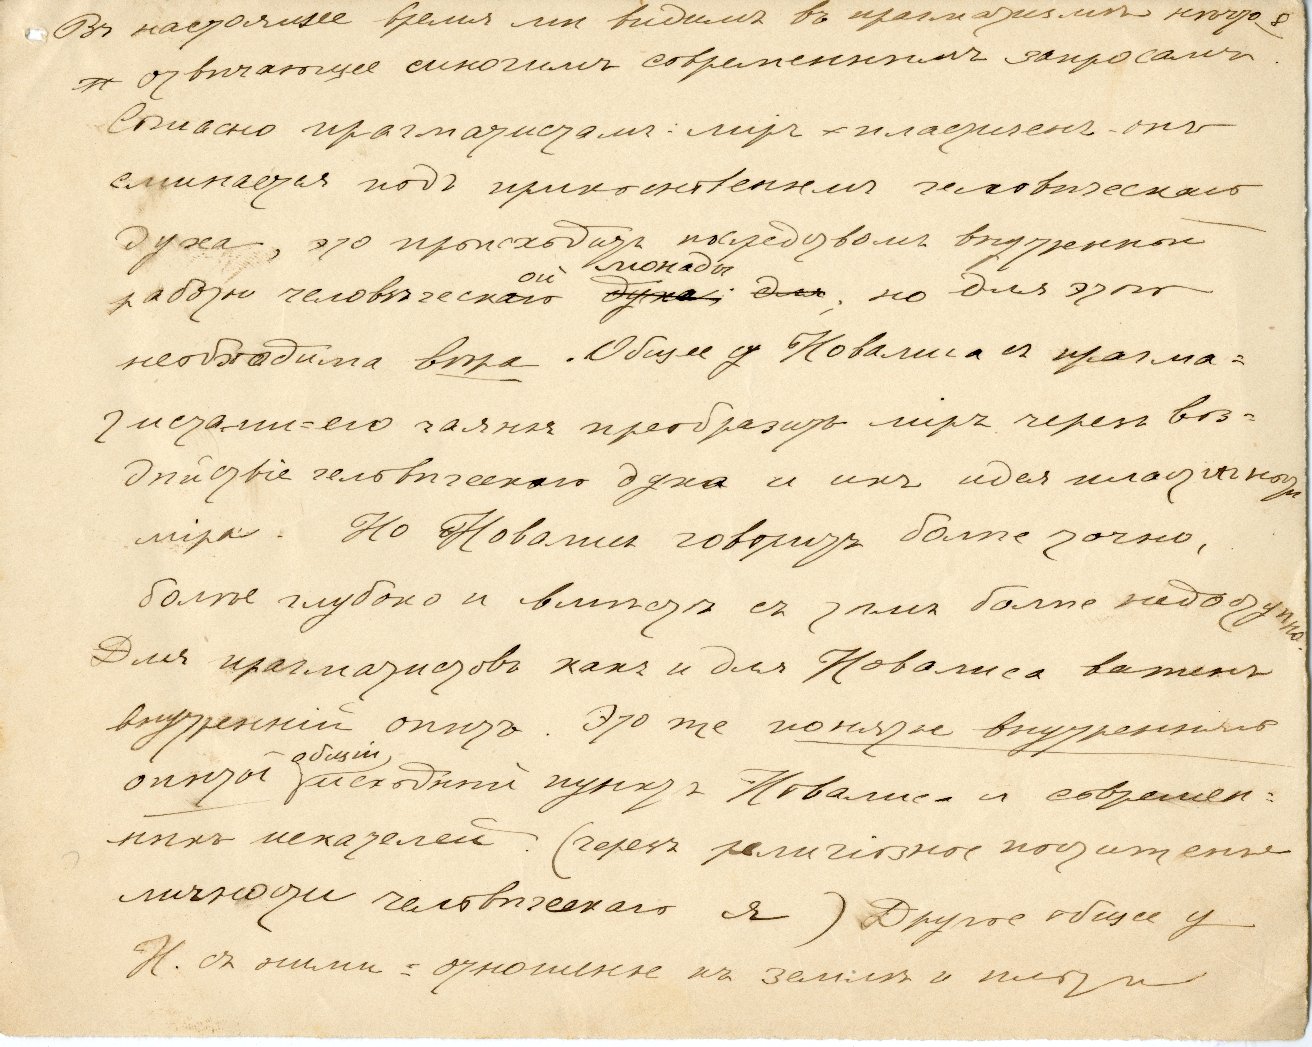 Въ настоящее время мы видимъ въ прагматизмѣ нѣчто 8
отвѣчающее многимъ современнымъ запросамъ.
Согласно прагматистамъ: міръ пластиченъ – онъ
сминается подъ прикосновеньемъ человѣческаго
духа, это происходитъ посредствомъ внутренной
работы человѣческаго ой духа; монады для, но для этого
необходима вѣра. Общее у Новалиса съ прагма=
тистами=его чаянья преобразить міръ черезъ воз=
дѣйствіе человѣческаго духа и ихъ идея пластичности
міра. Но Новалисъ говоритъ болѣе точно,
болѣе глубоко и вмѣстѣ съ тѣмъ болѣе недоступно.
Для прагматистовъ какъ и для Новалиса важенъ
внутренній опытъ. Это же понятье внутренняго
опыта общій исходный пунктъ Новалиса и современ=
ныхъ искателей. (черезъ религіозное постиженье
личности человѣческаго я) Другое общее у
Н. съ ними = отношенье къ землѣ и плоти